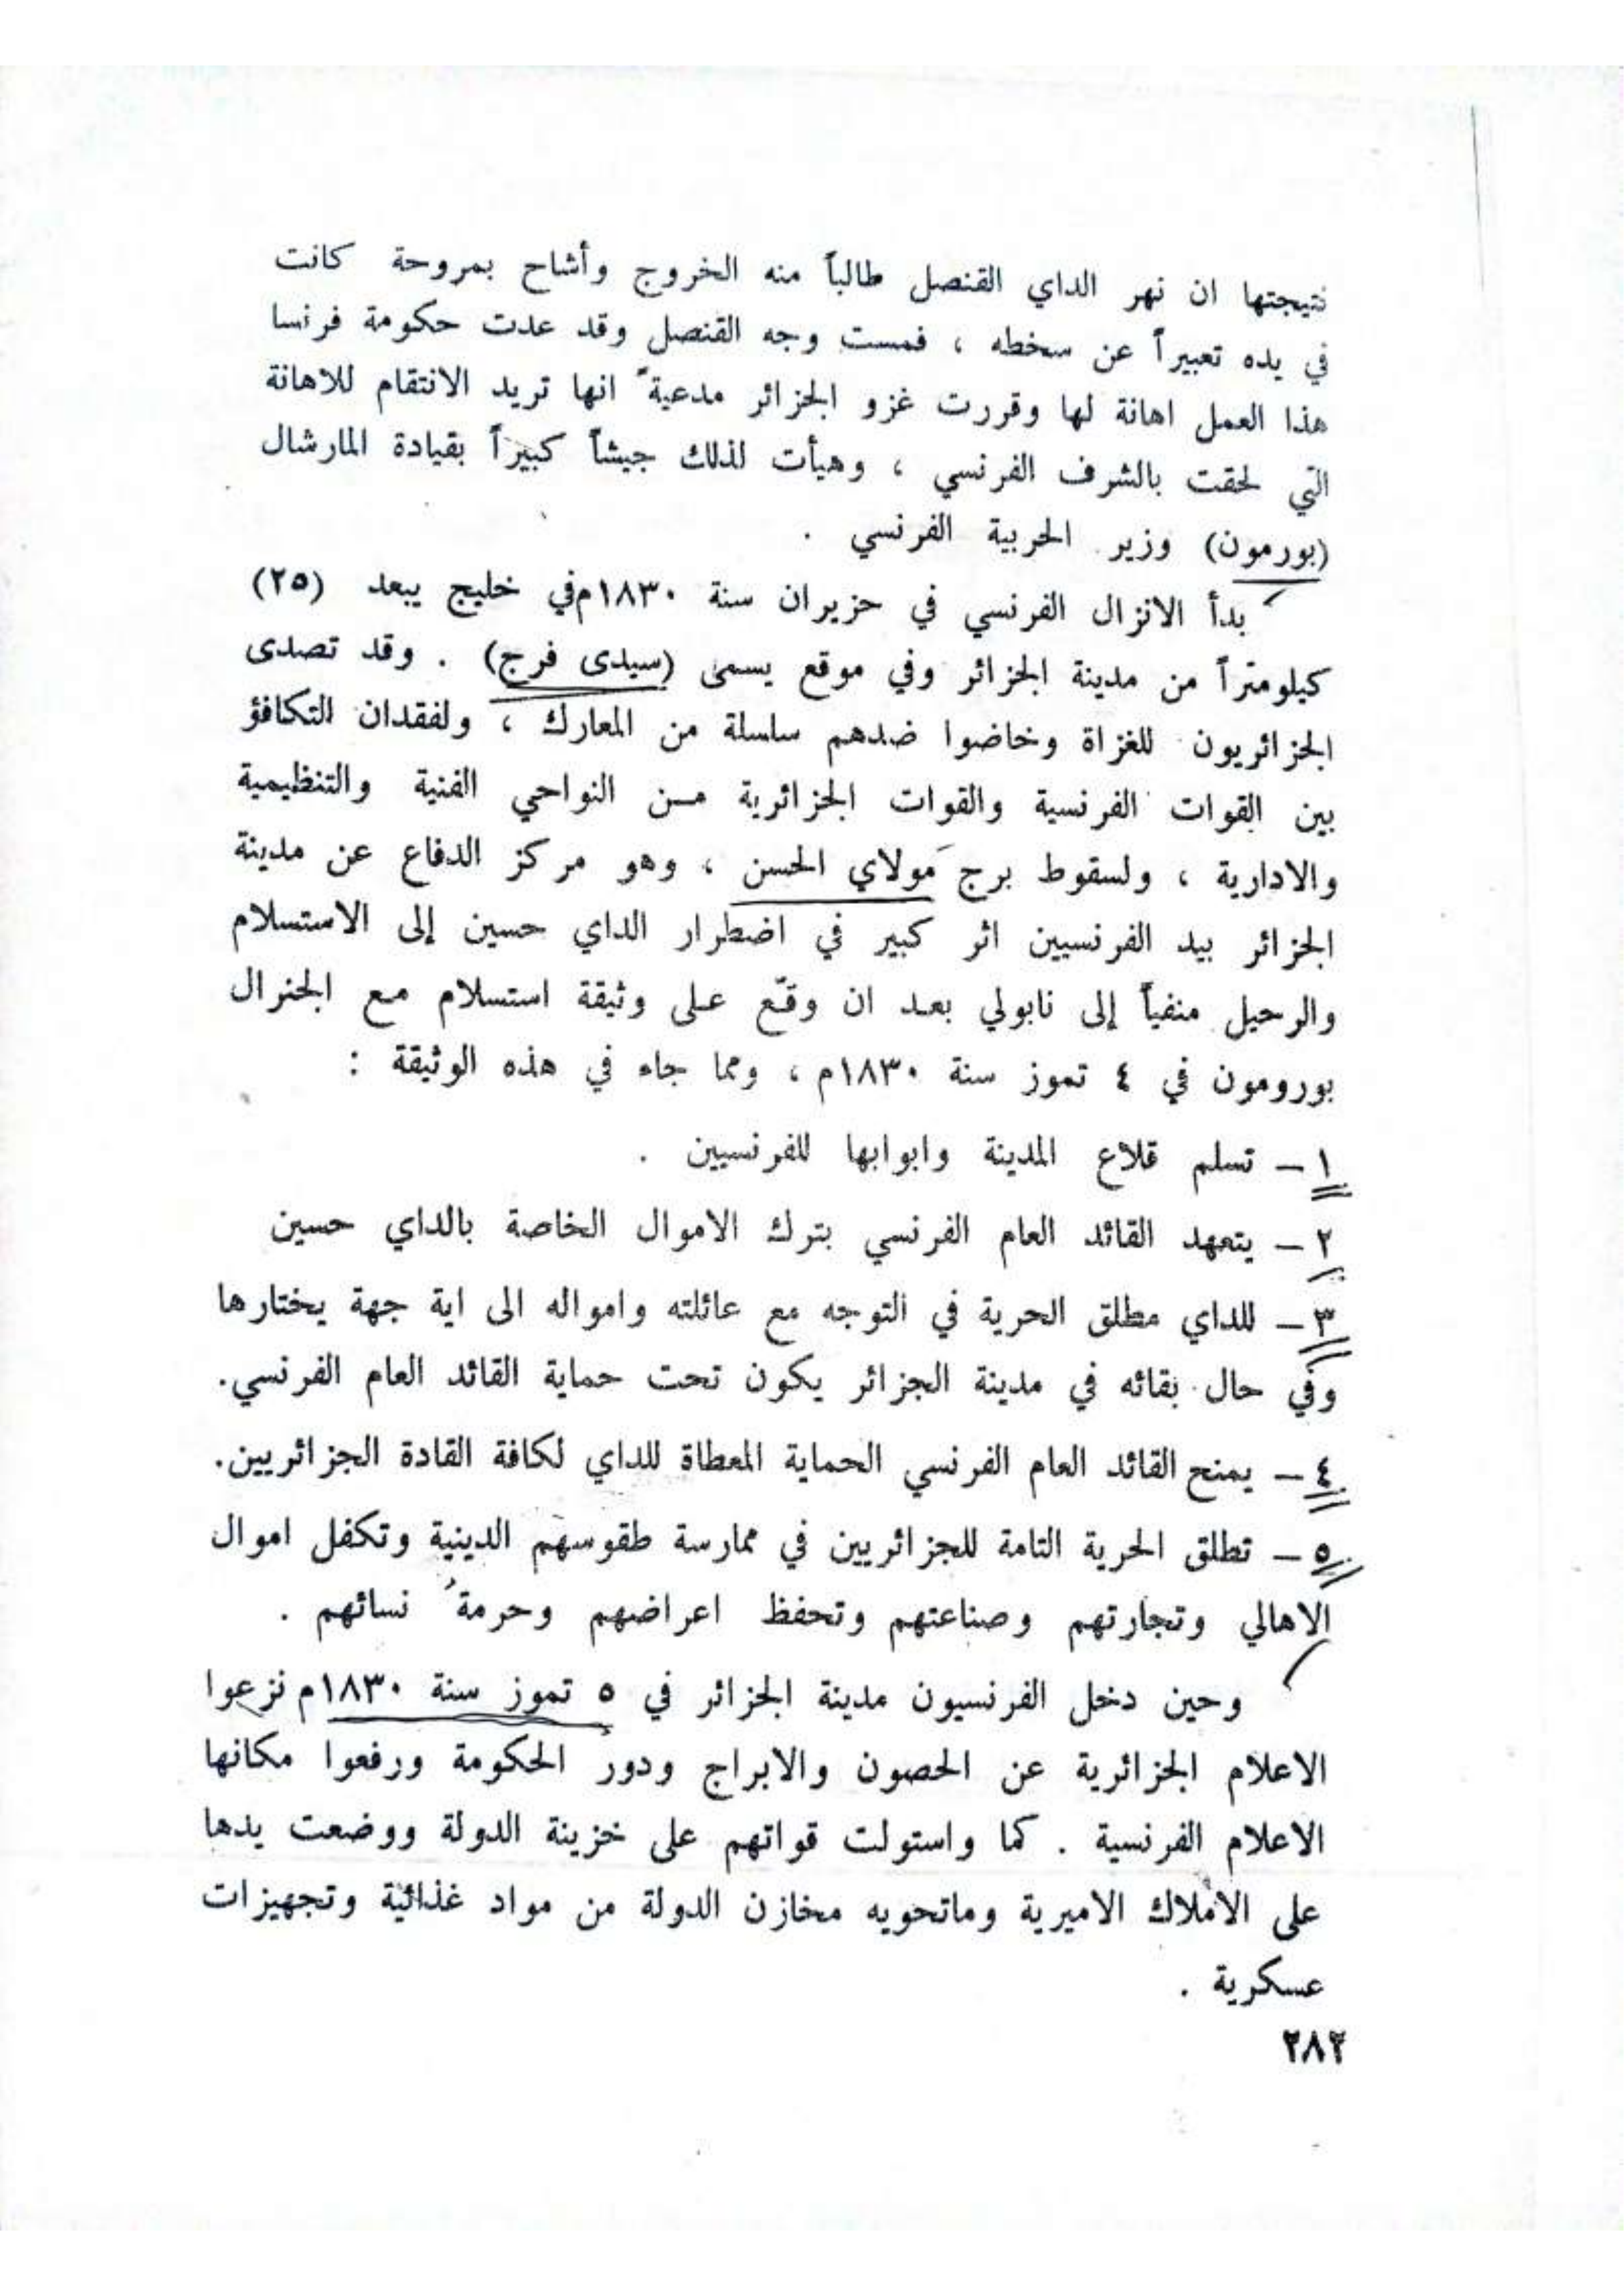 نتيجتها ان نهر الداي القنصل طالباً منه الخروج وأشاح بمروحة كانت
في يده تعبيراً عن سخطه ، فمست وجه القنصل وقد عدت حكومة فرنسا
هذا العمل اهانة لها وقررت غزو الجزائر مدعيةً انها تريد الانتقام للاهانة
التي لحقت بالشرف الفرنسي ، وهيأت لذلك جيشاً كبيراً بقيادة المارشال
(بورمون) وزير الحربية الفرنسي .
بدأ الانزال الفرنسي في حزيران سنة ١٨٣٠م في خليج يبعد (٢٥)
كيلومتراً من مدينة الجزائر وفي موقع يسمى (سيدى فرج) . وقد تصدى
الجزائريون للغزاة وخاضوا ضدهم سلسلة من المعارك ، ولفقدان التكافؤ
بين القوات الفرنسية والقوات الجزائرية مـن النواحي الفنية والتنظيمية
والادارية ، ولسقوط برج مولاي الحسن ، وهو مركز الدفاع عن مدينة
الجزائر بيد الفرنسيين اثر كبير في اضطرار الداي حسين إلى الاستسلام
والرحيل منفياً إلى نابولي بعد ان وقّع على وثيقة استسلام مع الجنرال
بورومون في ٤ تموز سنة ١٨٣٠م ، ومما جاء في هذه الوثيقة :
١ – تسلم قلاع المدينة وابوابها للفرنسيين .
٢ – يتعهد القائد العام الفرنسي بترك الاموال الخاصة بالداي حسين
٣ – للداي مطلق الحرية في التوجه مع عائلته وامواله الى اية جهة يختارها
وفي حال بقائه في مدينة الجزائر يكون تحت حماية القائد العام الفرنسي.
٤ – يمنح القائد العام الفرنسي الحماية المعطاة للداي لكافة القادة الجزائريين.
٥ – تطلق الحرية التامة للجزائريين في ممارسة طقوسهم الدينية وتكفل اموال
الاهالي وتجارتهم وصناعتهم وتحفظ اعراضهم وحرمةُ نسائهم .
وحين دخل الفرنسيون مدينة الجزائر في ٥ تموز سنة ١٨٣٠م نزعوا
الاعلام الجزائرية عن الحصون والابراج ودور الحكومة ورفعوا مكانها
الاعلام الفرنسية . كما واستولت قواتهم على خزينة الدولة ووضعت يدها
على الاملاك الاميرية وماتحويه مخازن الدولة من مواد غذائية وتجهيزات
عسكرية .
٢٨٢